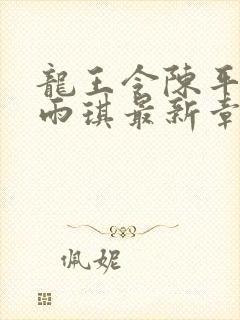 龍王令陳平
雨琪最新章
佩妮